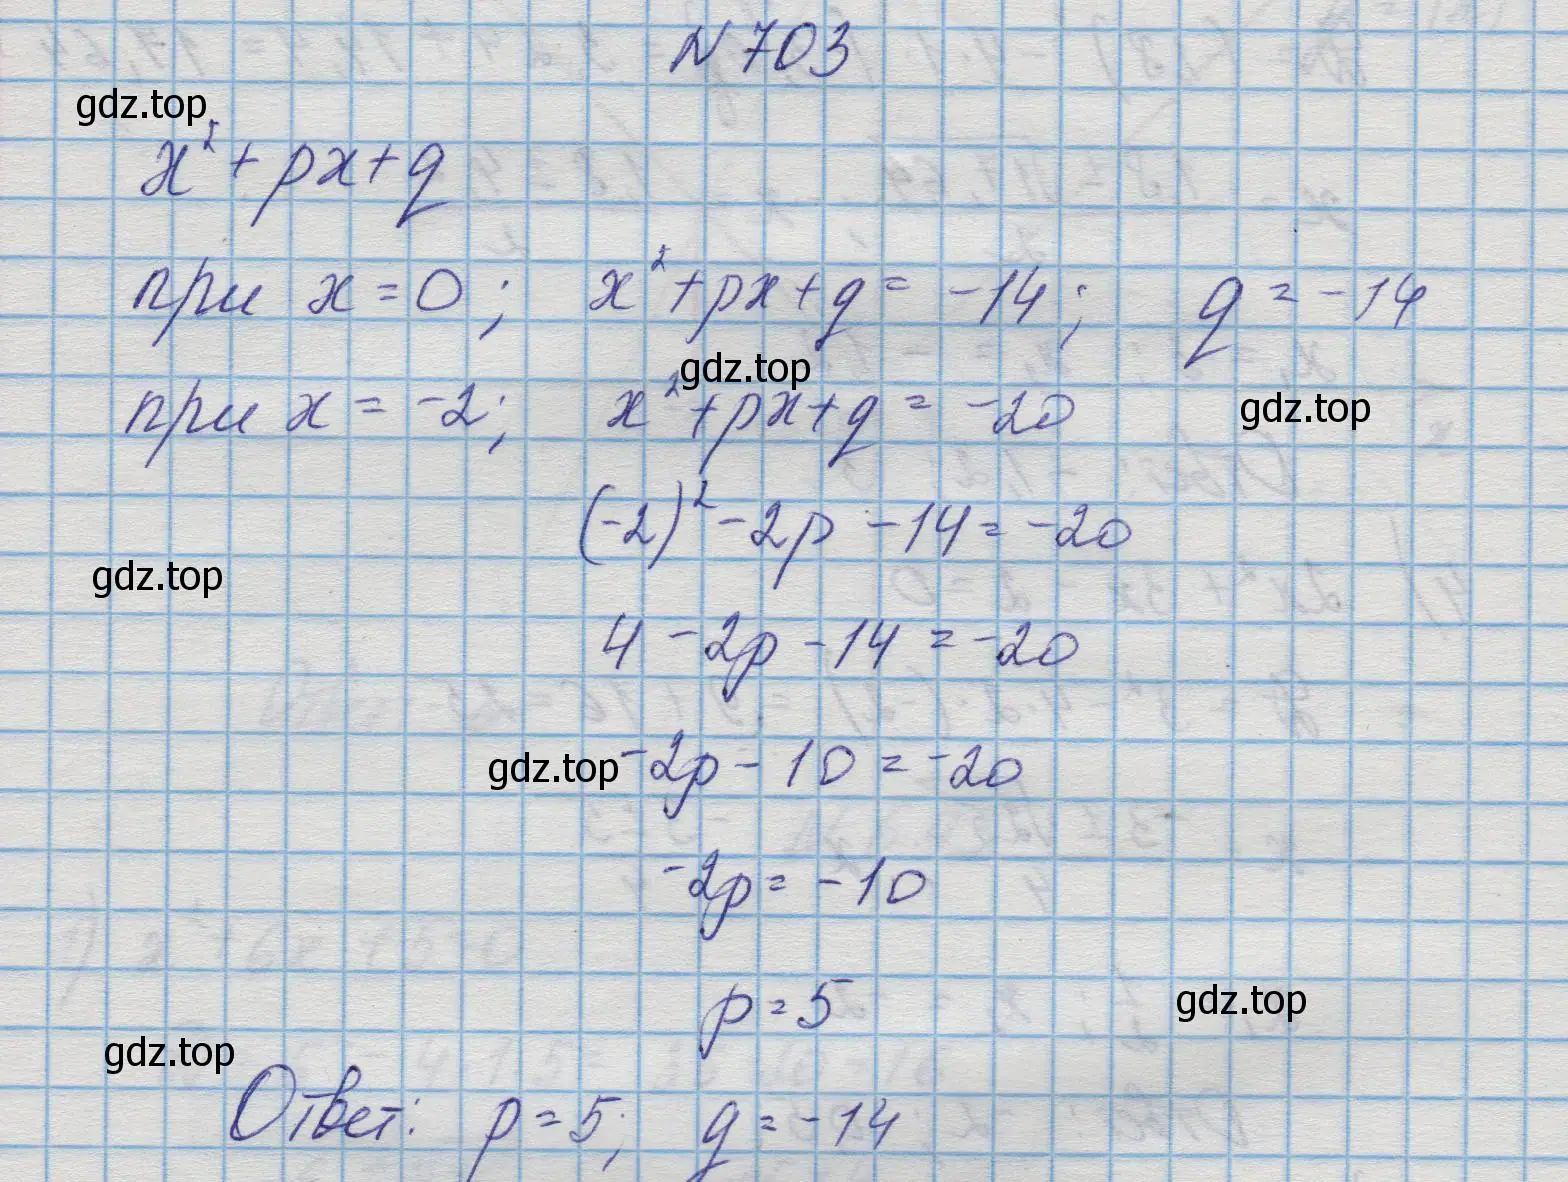 N 703
gdz.top
x² + px + q
при x = 0; x² + px + q = -14; q = -14
gdz.top
при x = -2; x² + px + q = -20
gdz.top
(-2)² - 2p - 14 = -20
gdz.top
4 - 2p - 14 = -20
gdz.top
-2p - 10 = -20
-2p = -10
p = 5
gdz.top
gdz.top
Ответ: p = 5; q = -14